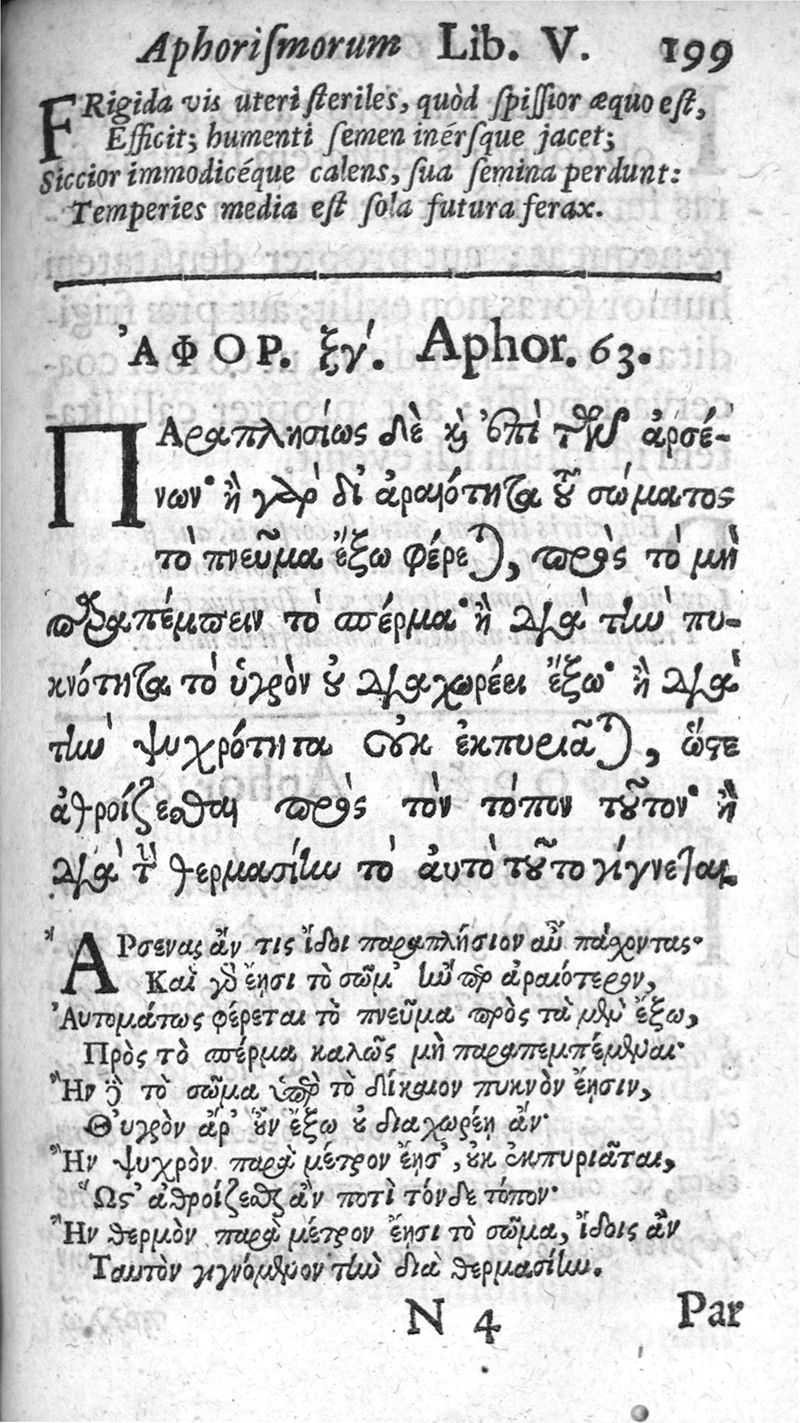 Aphoriſmorum Lib. V. 199
FRigida vis uteri ſteriles, quòd ſpiſſior æquo eſt,
Efficit; humenti ſemen inérſque jacet;
Siccior immodicéque calens, ſua ſemina perdunt:
Temperies media eſt ſola futura ferax.
ἈΦΟΡ. ξγʹ. Aphor. 63.
ΠΑραπλησίως δὲ καὶ ἐπὶ τῶν ἀρσέ-
νων· ἢ γὰρ δι' ἀραιότητα τοῦ σώματος
τὸ πνεῦμα ἔξω φέρεται, πρὸς τὸ μὴ
παραπέμπειν τὸ σπέρμα· ἢ διὰ τὴν πυ-
κνότητα τὸ ὑγρὸν οὐ διαχωρέει ἔξω· ἢ διὰ
τὴν ψυχρότητα οὐκ ἐκπυριᾶται, ὥστε
ἀθροίζεσθαι πρὸς τὸν τόπον τοῦτον· ἢ
διὰ τὴν θερμασίην τὸ αὐτὸ τοῦτο γίγνεται.
ἌΡσενας ἄν τις ἴδοι παραπλήσιον αὖ πάσχοντας·
Καὶ γὰρ ἔῃσι τὸ σῶμ' ἢν ὑπὲρ ἀραιότερον,
Ἀυτομάτως φέρεται τὸ πνεῦμα πρὸς τὰ μὲν ἔξω,
Πρὸς τὸ σπέρμα καλῶς μὴ παραπεμπέμεναι·
Ἢν δὲ τὸ σῶμα ὑπὲρ τὸ δίκαιον πυκνὸν ἔῃσιν,
Θ' υγρὸν ἄρ' οὖν ἔξω οὐ διαχωρέῃ ἄν·
Ἢν ψυχρὸν παρὰ μέτρον ἔῃσ', οὐκ ἐκπυριᾶται,
Ὥς' ἀθροίζεσθαι ἂν ποτὶ τόνδε τόπον·
Ἢν θερμὸν παρὰ μέτρον ἔῃσι τὸ σῶμα, ἴδοις ἂν
Ταυτὸν γιγνόμενον τὴν διὰ θερμασίην.
N 4 Par